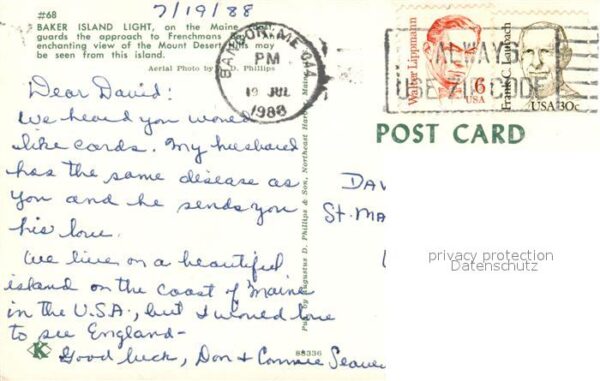 7/19/88
#68
BAKER ISLAND LIGHT, on the Maine
guards the approach to Frenchmans
enchanting view of the Mount Desert Hills may
be seen from this island.
Aerial Photo by Phillips
BANGOR, ME 044
PM
19 JUL
1988
ALWAYS
USE ZIP CODE
Walter Lippmann
6
USA
Frank C. Laubach
USA 30c
POST CARD
Dear David:
We heard you would
like cards. My husband
has the same disease as
you and he sends you
his love.
We live on a beautiful
island on the coast of Maine
in the U.S.A., but I would love
to see England-
Good luck, Don & Connie Seavey
Pub. by Augustus D. Phillips & Son, Northeast Harbor, Maine
Dav
St. Ma
privacy protection
Datenschutz
K
88336